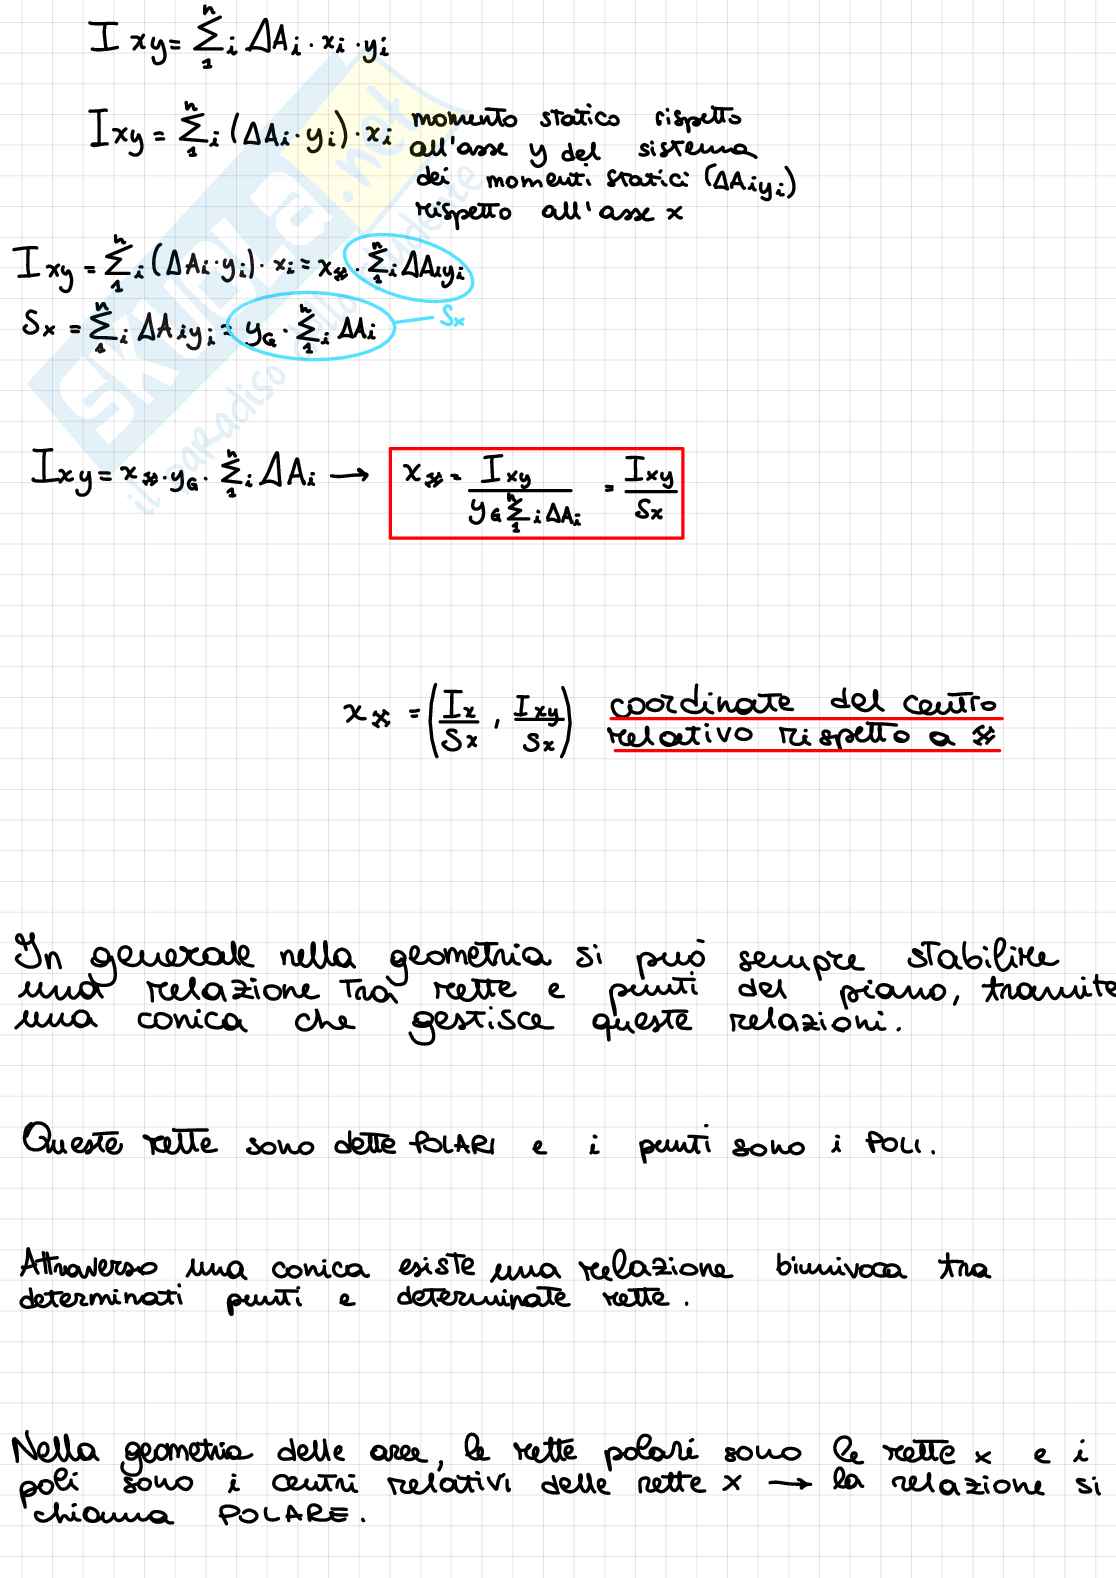 I xy = Σ₁ⁿ i ΔAi · xi · yi
Ixy = Σ₁ⁿ i (ΔAi · yi) · xi momento statico rispetto
all'asse y del sistema
dei momenti statici (ΔAiyi)
rispetto all'asse x
Ixy = Σ₁ⁿ i (ΔAi · yi) · xi = x⁎ · Σ₁ⁿ i ΔAiyi
Sx = Σ₁ⁿ i ΔAiyi = yG · Σ₁ⁿ i ΔAi — Sx
Ixy = x⁎ · yG · Σ₁ⁿ i ΔAi → x⁎ = Ixy / (yG Σ₁ⁿ i ΔAi) = Ixy / Sx
x⁎ = (Ix/Sx , Ixy/Sx) coordinate del centro
relativo rispetto a ⁎
In generale nella geometria si può sempre stabilire
una relazione tra rette e punti del piano, tramite
una conica che gestisce queste relazioni.
Queste rette sono dette POLARI e i punti sono i POLI.
Attraverso una conica esiste una relazione biunivoca tra
determinati punti e determinate rette.
Nella geometria delle aree, le rette polari sono le rette x e i
poli sono i centri relativi delle rette x → la relazione si
chiama POLARE.
SKUOLA.net